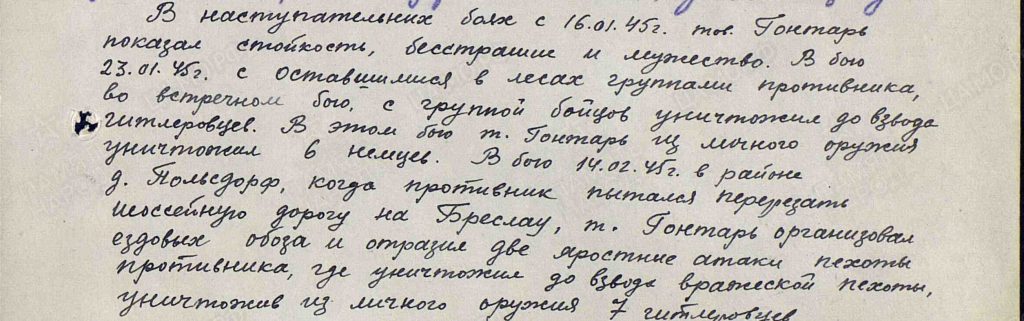 В наступательних боях с 16.01.45г. тов. Гонтарь
показал стойкость, бесстрашие и мужество. В бою
23.01.45г. с оставшимися в лесах группами противника,
во встречном бою, с группой бойцов уничтожил до взвода
гитлеровцев. В этом бою т. Гонтарь из личного оружия
уничтожил 6 немцев. В бою 14.02.45г. в районе
д. Польсдорф, когда противник пытался перерезать
шоссейную дорогу на Бреслау, т. Гонтарь организовал
ездовых обоза и отразил две яростние атаки пехоты
противника, где уничтожил до взвода вражеской пехоты,
уничтожив из личного оружия 7 гитлеровцев